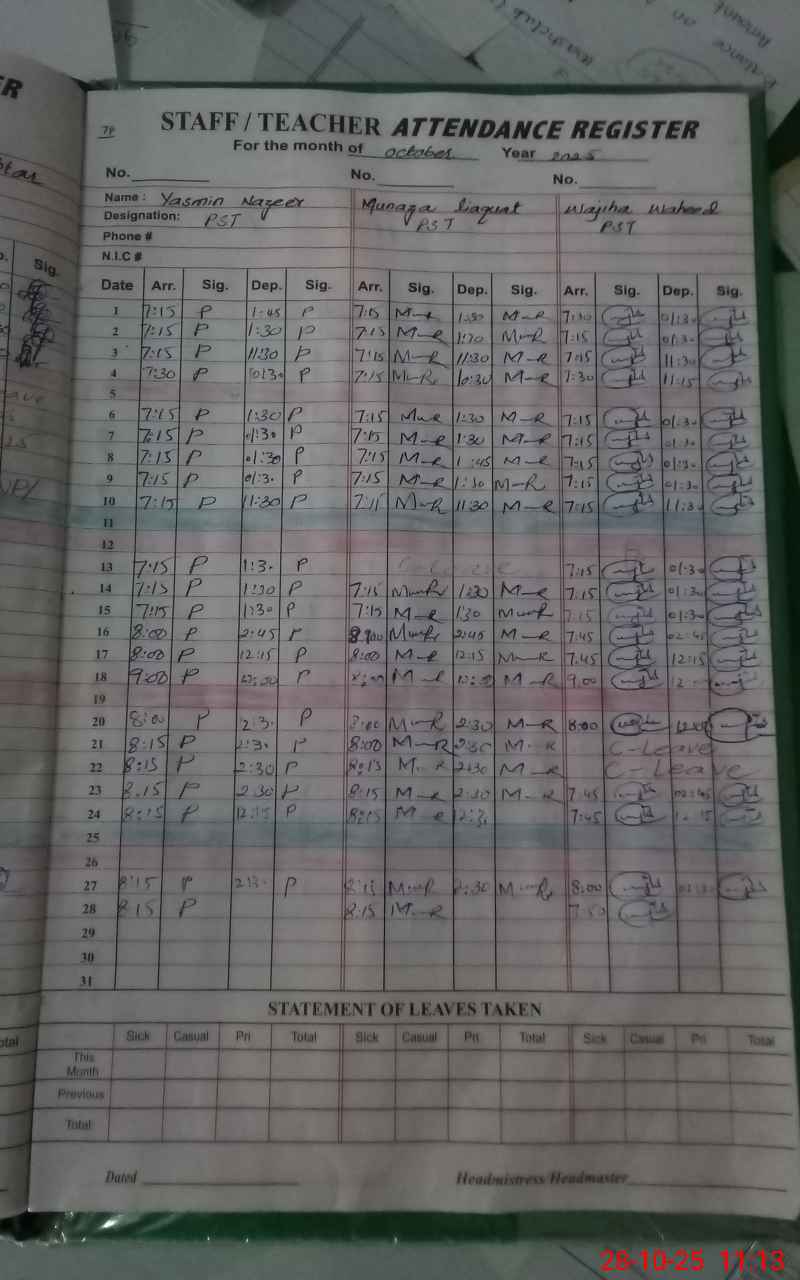 STAFF / TEACHER ATTENDANCE REGISTER
For the month of October Year 2025
No. No. No.
Name : Yasmin Nazeer Munaza Liaquat Wajiha Waheed
Designation: PST PST PST
Phone #
N.I.C #
Date Arr. Sig. Dep. Sig. Arr. Sig. Dep. Sig. Arr. Sig. Dep. Sig.
1 7:15 P 1:45 P 7:15 M-R 1:30 M-R 7:30 01:30
2 7:15 P 1:30 P 7:15 M-R 1:30 M-R 7:15 01:30
3 7:15 P 11:30 P 7:15 M-R 11:30 M-R 7:15 11:30
4 7:30 P 10:30 P 7:15 10:30 M-R 7:30 11:15
5
6 7:15 P 1:30 P 7:15 M-R 1:30 M-R 7:15 01:30
7 7:15 P 01:30 P 7:15 M-R 1:30 M-R 7:15 01:30
8 7:15 P 01:30 P 7:15 M-R 1:45 M-R 7:15 01:30
9 7:15 P 01:30 P 7:15 M-R 1:30 M-R 7:15 01:30
10 7:15 P 11:30 P 7:15 M-R 11:30 M-R 7:15 11:30
11
12
13 7:15 P 1:30 P C-Leave 7:15 01:30
14 7:15 P 1:30 P 7:15 1:30 M-R 7:15 01:30
15 7:15 P 1:30 P 7:15 M-R 1:30 7:15 01:30
16 8:00 P 2:45 P 8:00 2:45 M-R 7:45 02:45
17 8:00 P 12:15 P 8:00 M-R 12:15 M-R 7:45 12:15
18 9:00 P P M-R M-R 9:00
19
20 8:00 P 2:30 P 8:00 M-R 2:30 M-R 8:00
21 8:15 P 2:30 P 8:00 M-R 2:30 M-R C-Leave
22 8:15 P 2:30 P 8:15 M-R 2:30 M-R C-Leave
23 8:15 P 2:30 P 8:15 M-R 2:30 M-R 7:45 02:45
24 8:15 P 12:15 P 8:15 M-R 7:45 12:15
25
26
27 8:15 P 2:30 P 8:15 M-R 2:30 M-R 8:00 02:30
28 8:15 P 8:15 M-R 7:50
29
30
31
STATEMENT OF LEAVES TAKEN
Sick Casual Pri Total Sick Casual Pri Total Sick Casual Pri Total
This
Month
Previous
Total
Dated Headmistress/Headmaster
28-10-25 11:13